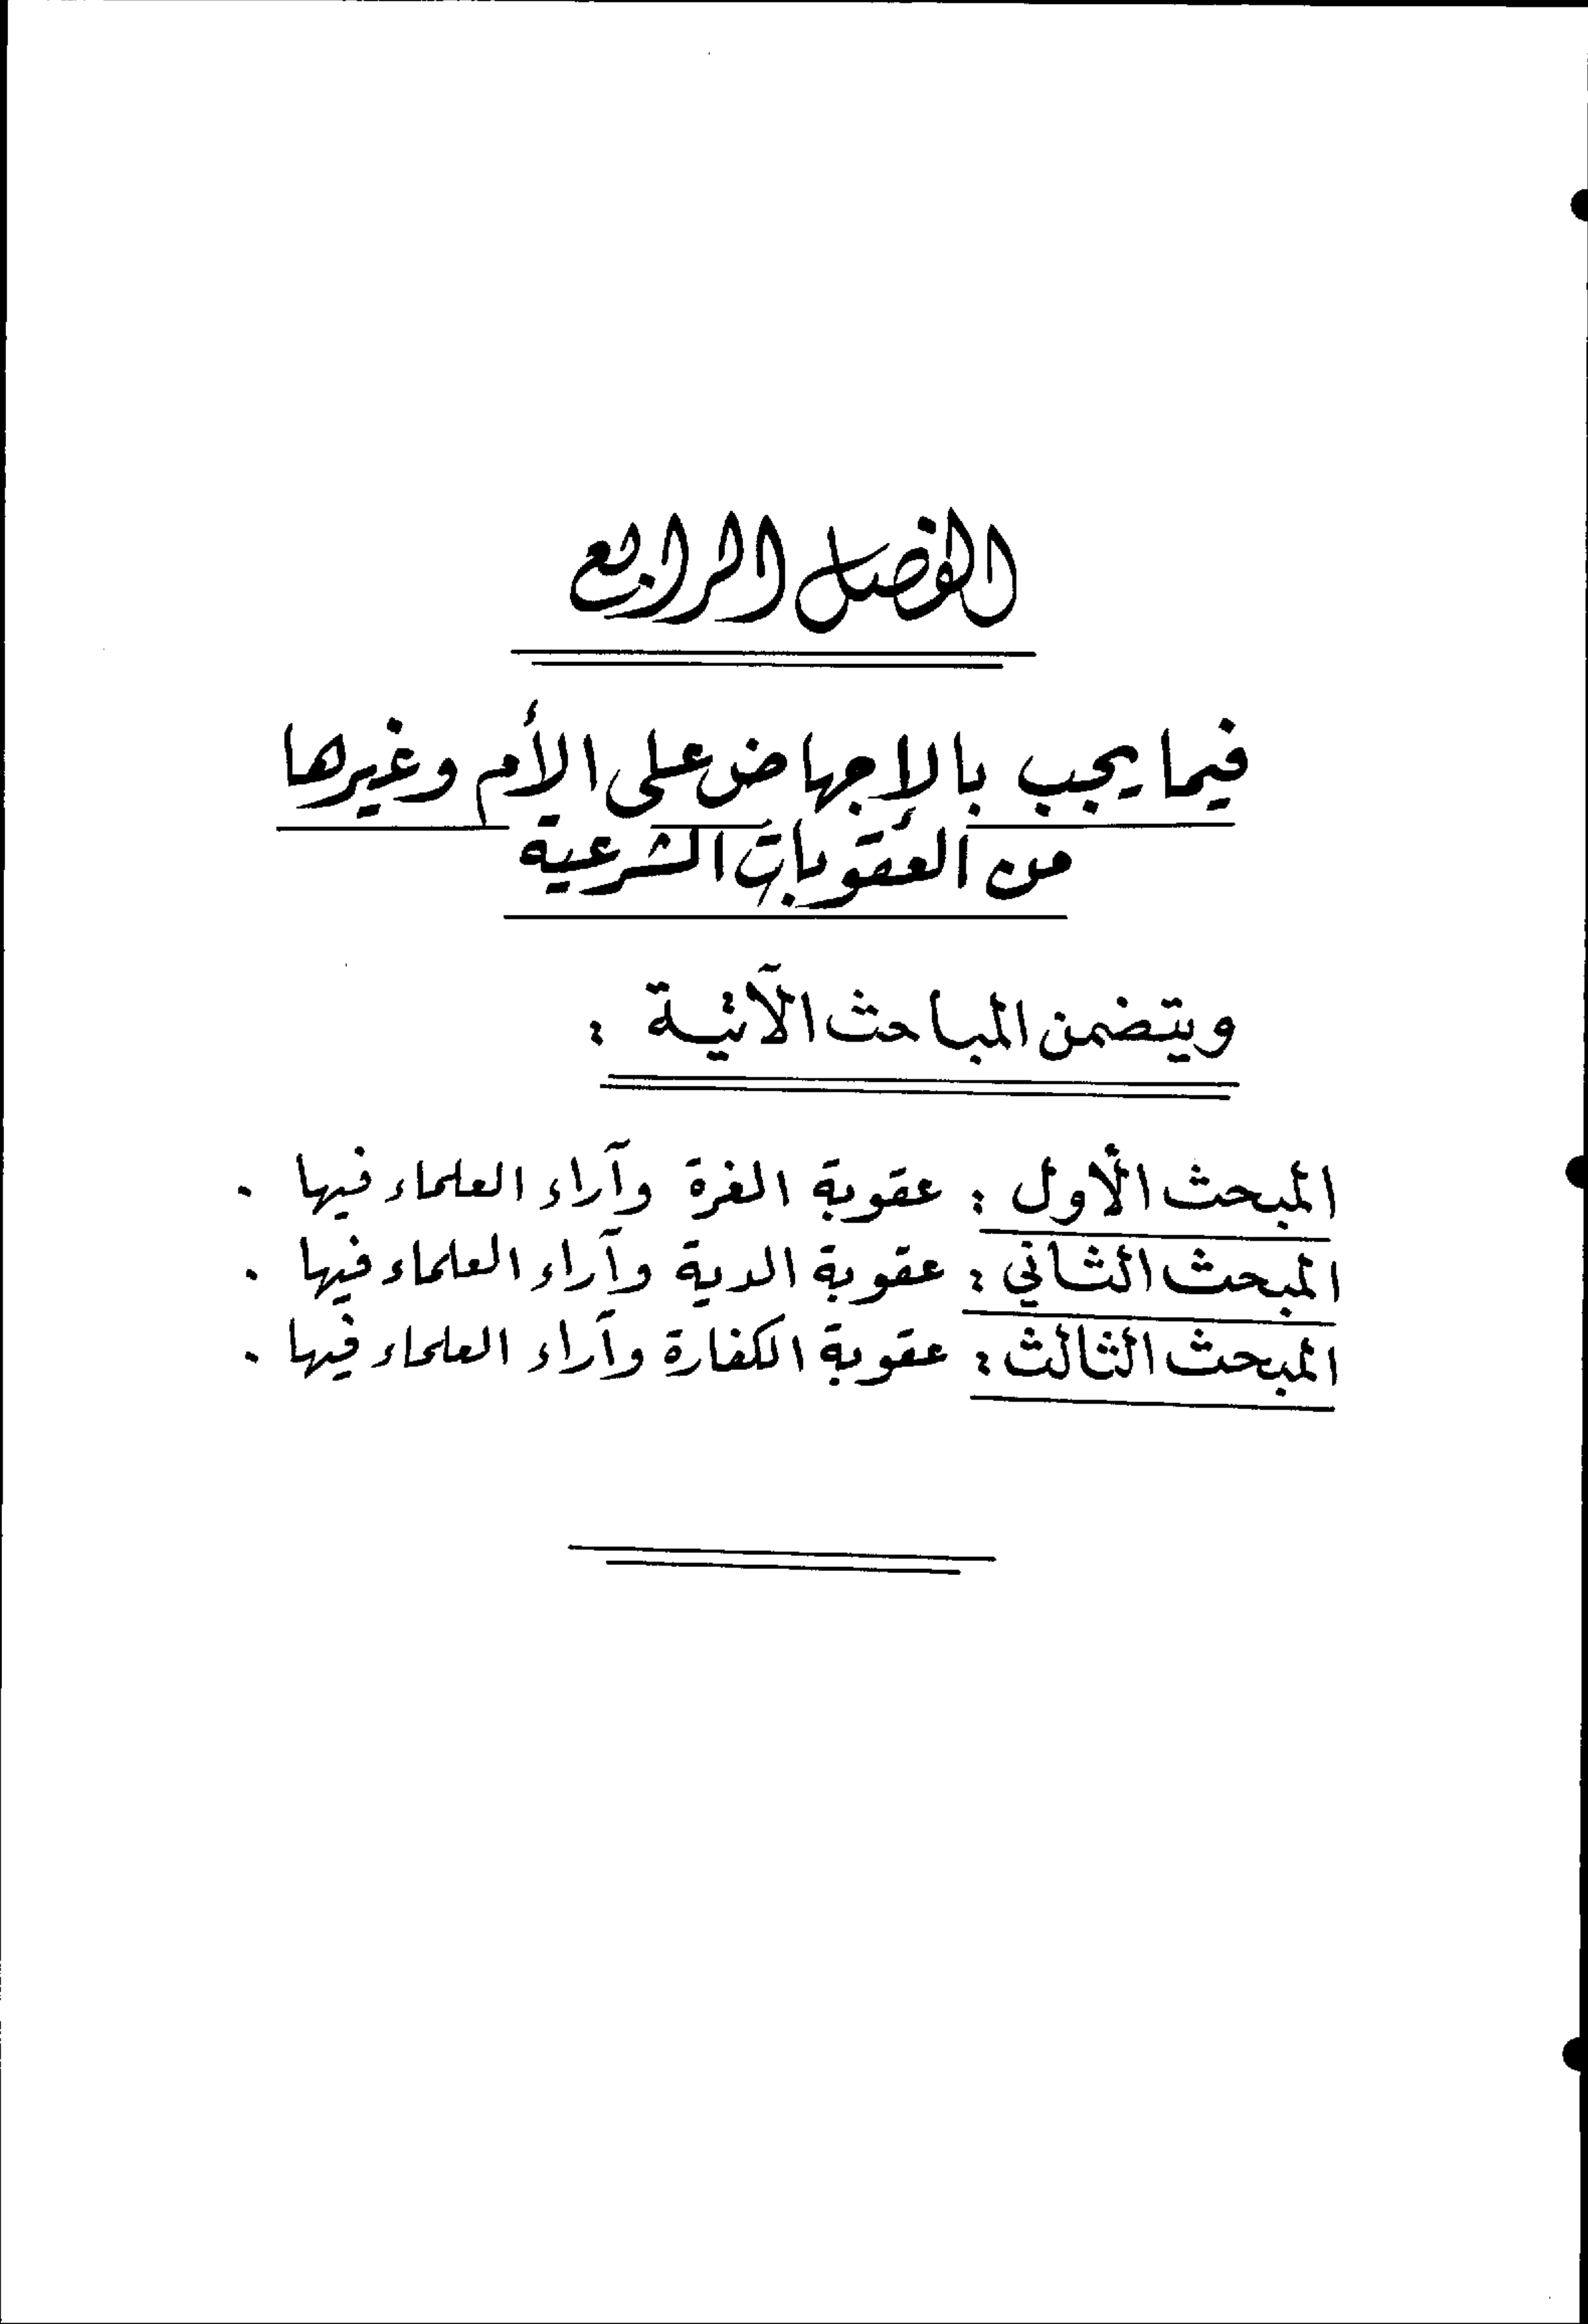 الفصل الرابع
فيما يجب بالإجهاض على الأم وغيرها
من العقوبات الشرعية
ويتضمن المباحث الآتية :
المبحث الأول : عقوبة الغرة وآراء العلماء فيها .
المبحث الثاني : عقوبة الدية وآراء العلماء فيها .
المبحث الثالث : عقوبة الكفارة وآراء العلماء فيها .